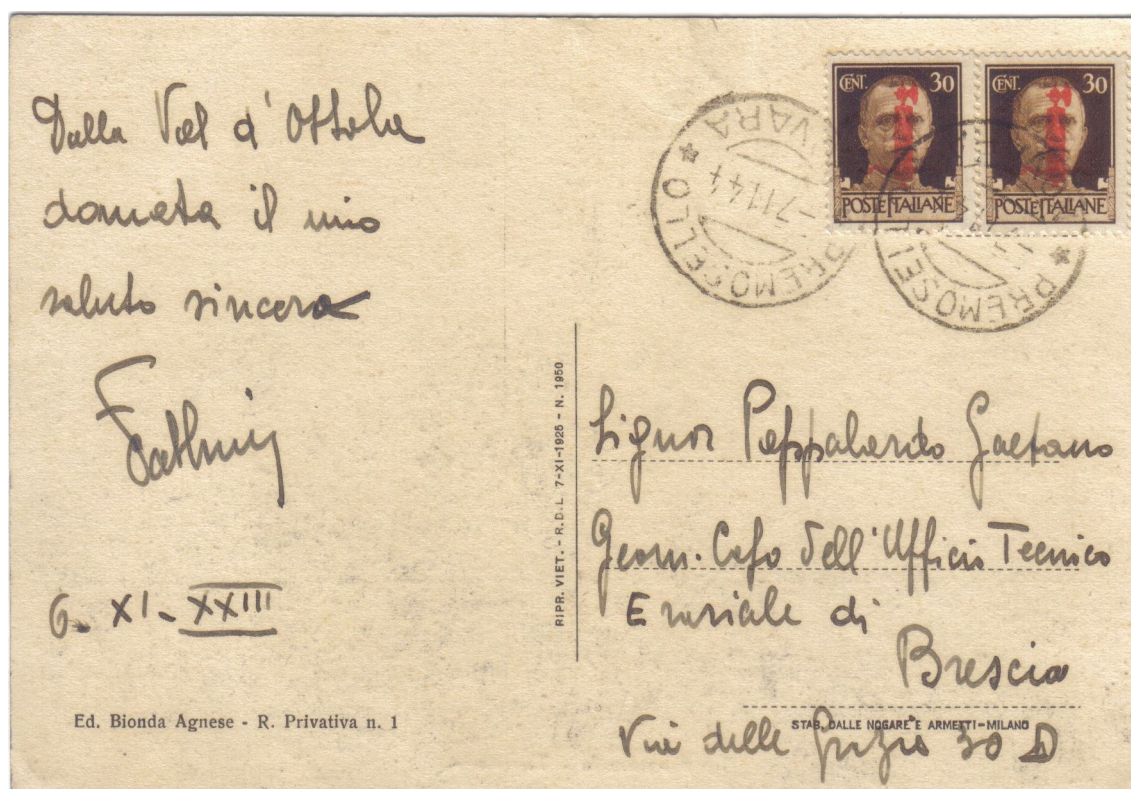 Dalla Val d'Ossola
domata il mio
saluto sincero
6. XI - XXIII
Ed. Bionda Agnese - R. Privativa n. 1
RIPR. VIET. - R.D.L. 7-XI-1925 - N. 1950
CENT. 30
POSTE ITALIANE
CENT. 30
POSTE ITALIANE
PREMOSELLO
VARA
-7.11.44
PREMOSEL
Signor Pappalardo Gaetano
Geom. Capo dell'Ufficio Tecnico
Erariale di
Brescia
STAB. DALLE NOGARE E ARMETTI - MILANO
Via delle Grazie 30 D